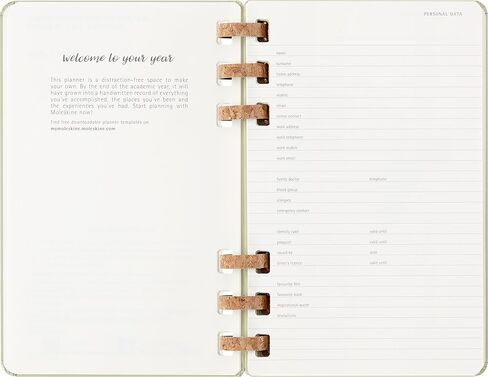 welcome to your year
This planner is a distraction-free space to make
your own. By the end of the academic year, it will
have grown into a handwritten record of everything
you've accomplished, the places you've been and
the experiences you've had. Start planning with
Moleskine now!
Find free downloadable planner templates on
mymoleskine.moleskine.com
PERSONAL DATA
name
surname
home address
telephone
mobile
email
online contact
work address
work telephone
work mobile
work email
family doctor telephone
blood group
allergies
emergency contact
identity card valid until
passport valid until
issued by
driver's licence valid until
favourite film
favourite book
inspirational